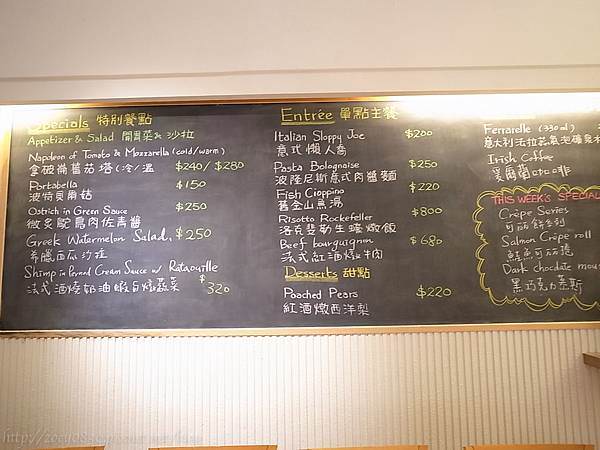 Specials 特別餐點
Appetizer & Salad 開胃菜&沙拉
Napoleon of Tomato & Mozzarella (cold/warm)
拿破崙蕃茄塔(冷/溫 $240/ $280
Portabella $150
波特貝爾菇
Ostrich in Green Sauce $250
微炙鴕鳥肉佐青醬
Greek Watermelon Salad, $250
希臘西瓜沙拉
Shimp in Pernod Cream Sauce w/ Rataouille
法式酒燒奶油蝦 燉蔬菜 $320
Entrée 單點主餐
Italian Sloppy Joe $200
意式懶人喬
Pasta Bolognaise $250
波隆尼斯意式肉醬麵
Fish Cioppino $220
舊金山魚湯
Risotto Rockefeller $800
洛克斐勒生蠔燉飯
Beef bourguignon $680
法式紅酒燉牛肉
Desserts 甜點
Poached Pears $220
紅酒燉西洋梨
Ferrarelle (330ml)
意大利法拉蕊氣泡礦泉水
Irish Coffee
愛爾蘭咖啡
THIS WEEK'S SPECIAL
Crêpe Series
可麗餅系列
Salmon Crêpe roll
鮭魚可麗捲
Dark chocolate mou
黑巧克力慕斯